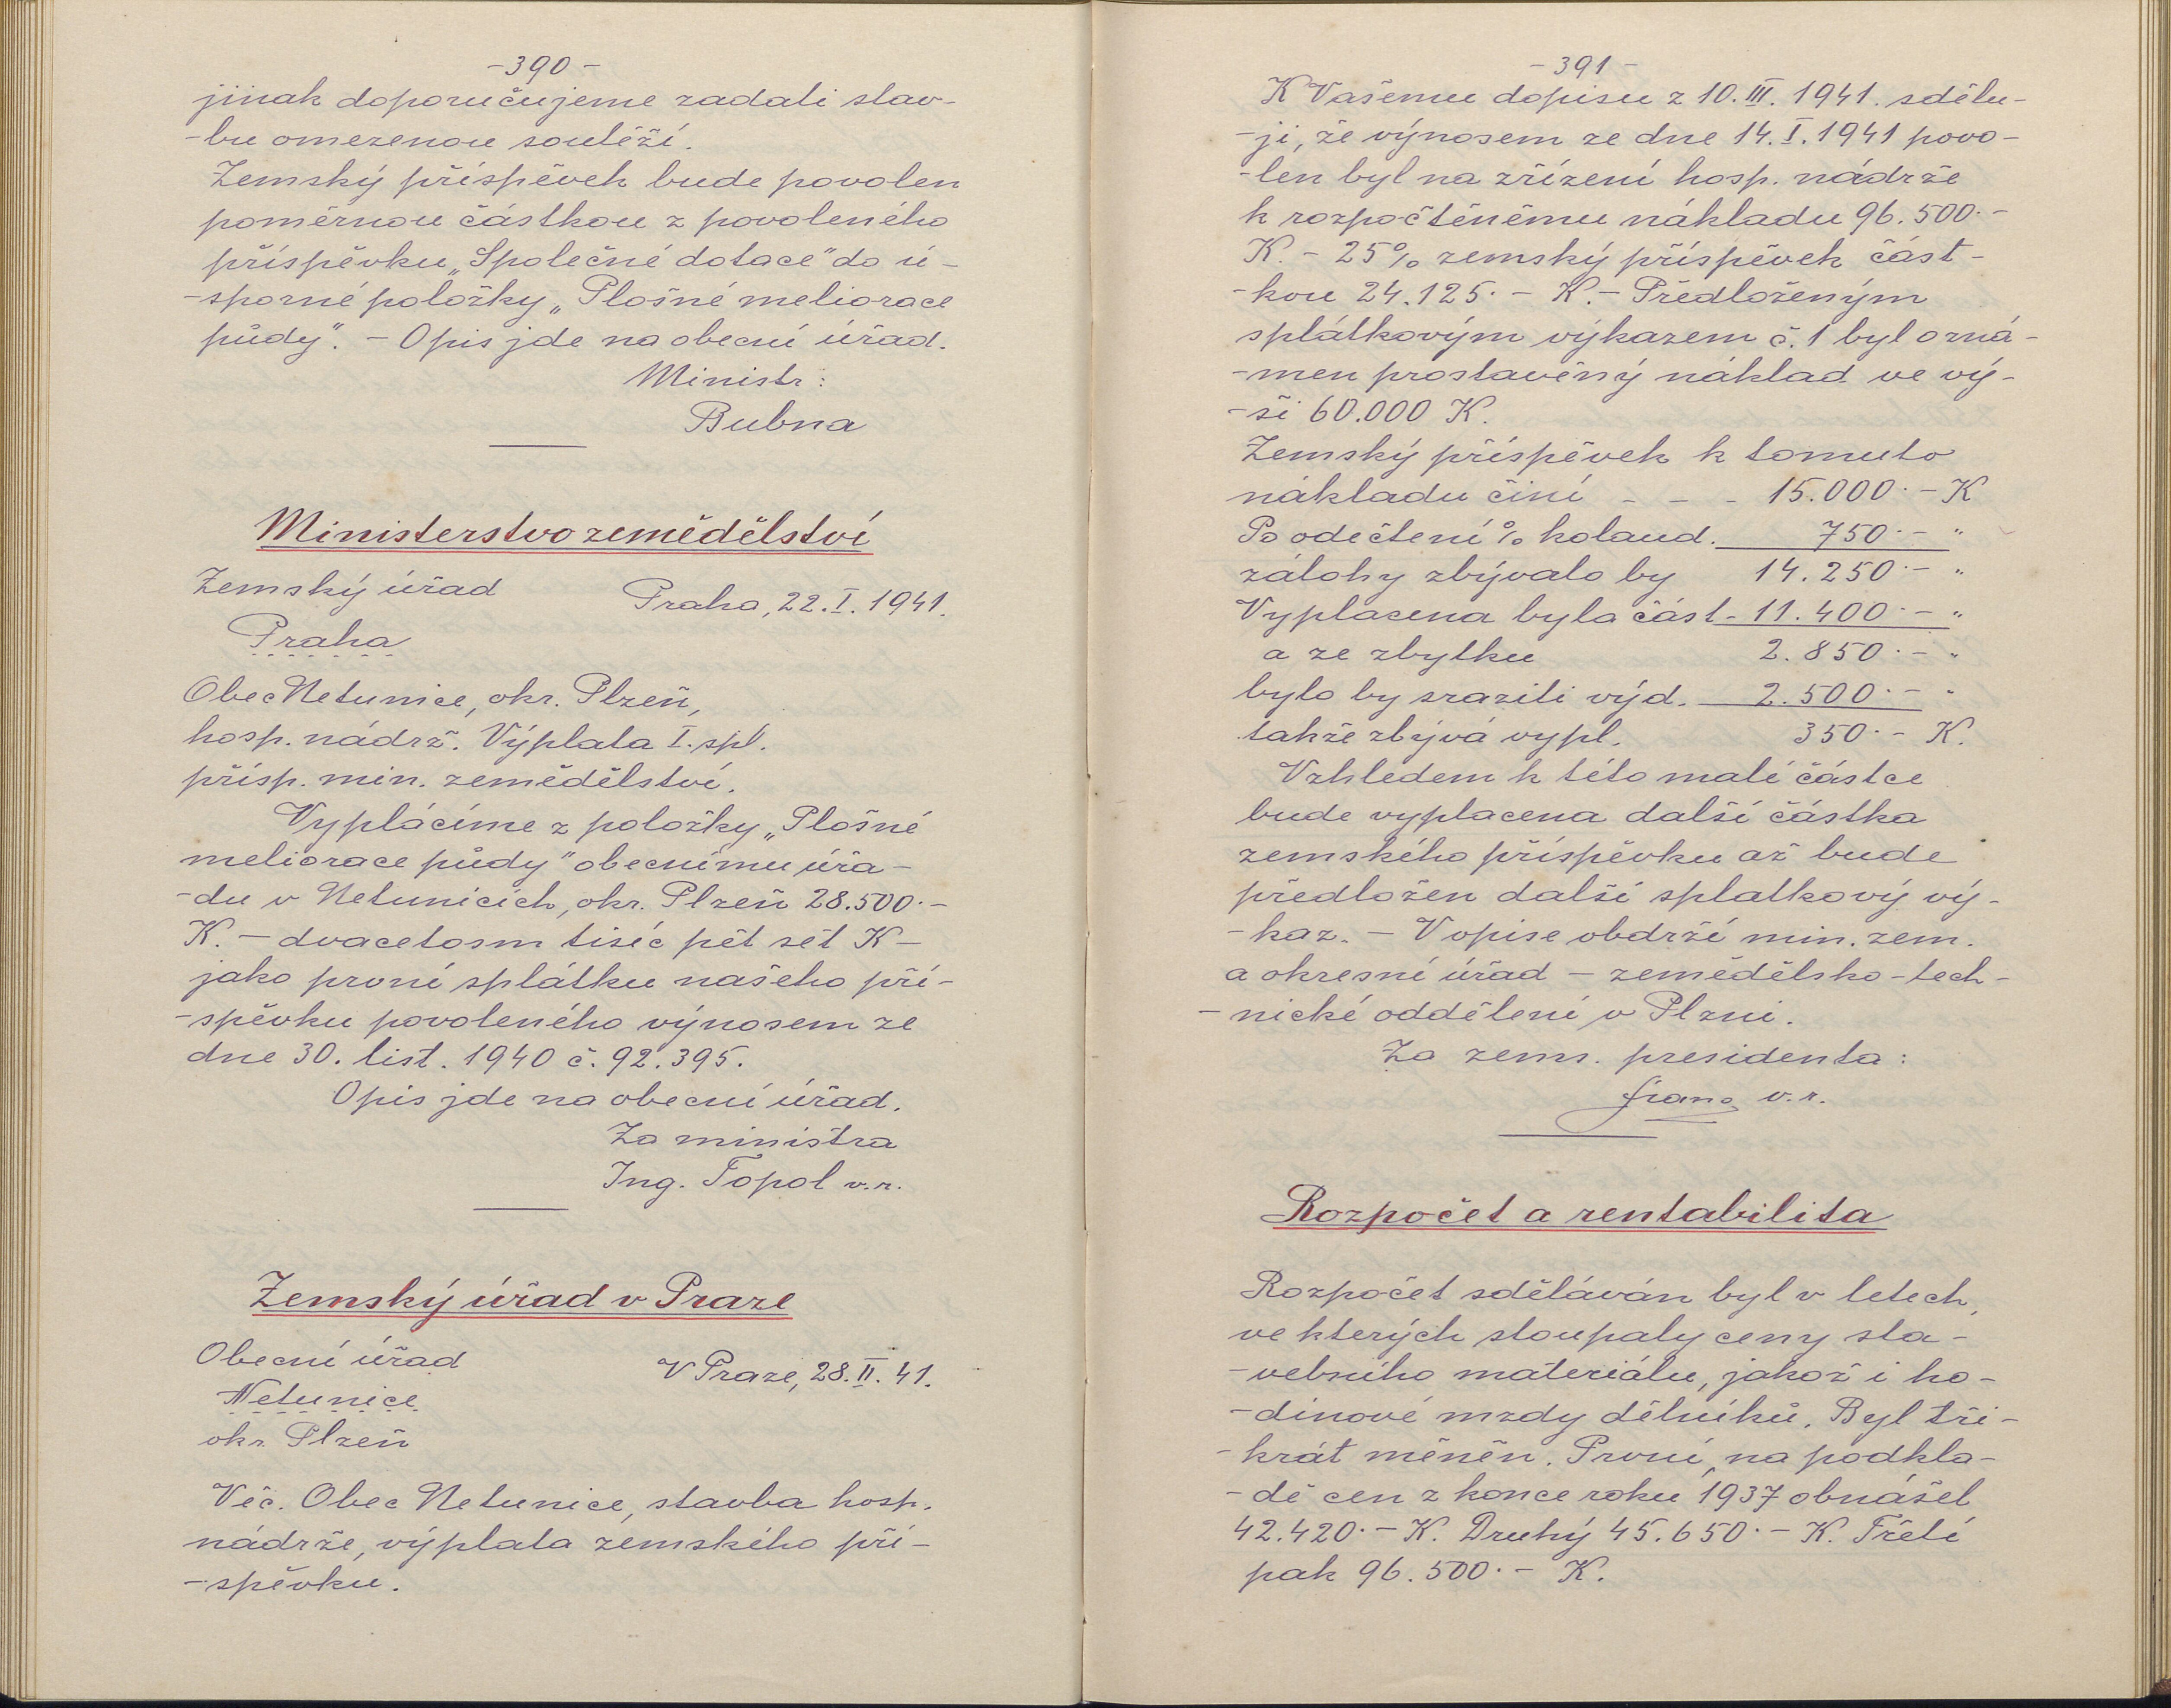 -390-
jinak doporučujeme zadati stav-
-bu omezenou soutěží.
Zemský příspěvek bude povolen
poměrnou částkou z povoleného
příspěvku „Společné dotace" do ú-
-sporné položky „Plošné meliorace
půdy". - Opis jde na obecní úřad.
Ministr:
Bubna
Ministerstvo zemědělství
Zemský úřad
Praha, 22. I. 1941.
Praha
Obec Netunice, okr. Plzeň,
hosp. nádrž. Výplata I. spl.
přísp. min. zemědělství.
Vyplácíme z položky „Plošné
meliorace půdy" obecnímu úřa-
-du v Netunicích, okr. Plzeň 28.500·-
K. - dvacetosm tisíc pět set K -
jako první splátku našeho pří-
-spěvku povoleného výnosem ze
dne 30. list. 1940 č. 92.395.
Opis jde na obecní úřad.
Za ministra
Ing. Topol v.r.
Zemský úřad v Praze
Obecní úřad
V Praze, 28. II. 41.
Netunice
okr. Plzeň
Věc. Obec Netunice, stavba hosp.
nádrže, výplata zemského pří-
-spěvku.
-391-
K Vašemu dopisu z 10. III. 1941. sdělu-
-ji, že výnosem ze dne 14. I. 1941 povo-
-len byl na zřízení hosp. nádrže
k rozpočtěnému nákladu 96.500·-
K. - 25% zemský příspěvek část-
-kou 24.125·- K. - Předloženým
splátkovým výkazem č. 1 byl ozná-
-men prostavěný náklad ve vý-
-ši 60.000 K.
Zemský příspěvek k tomuto
nákladu činí - - - 15.000·- K
Po odečtení % kolaud. 750·- "
zálohy zbývalo by 14.250·- "
Vyplacena byla část- 11.400·- "
a ze zbytku 2.850·- "
bylo by sraziti výd. 2.500·- "
takže zbývá vypl. 350·- K.
Vzhledem k této malé částce
bude vyplacena další částka
zemského příspěvku až bude
předložen další splatkový vý-
-kaz. - V opise obdrží min. zem.
a okresní úřad - zemědělsko-tech-
-nické oddělení v Plzni.
Za zems. presidenta:
v.r.
Rozpočet a rentabilita
Rozpočet sděláván byl v letech,
ve kterých stoupaly ceny sta-
-vebního materiálu, jakož i ho-
-dinové mzdy dělníků. Byl tři-
-krát měněn. První, na podkla-
-dě cen z konce roku 1937 obnášel
42.420·- K. Druhý 45.650·- K. Třetí
pak 96.500·- K.